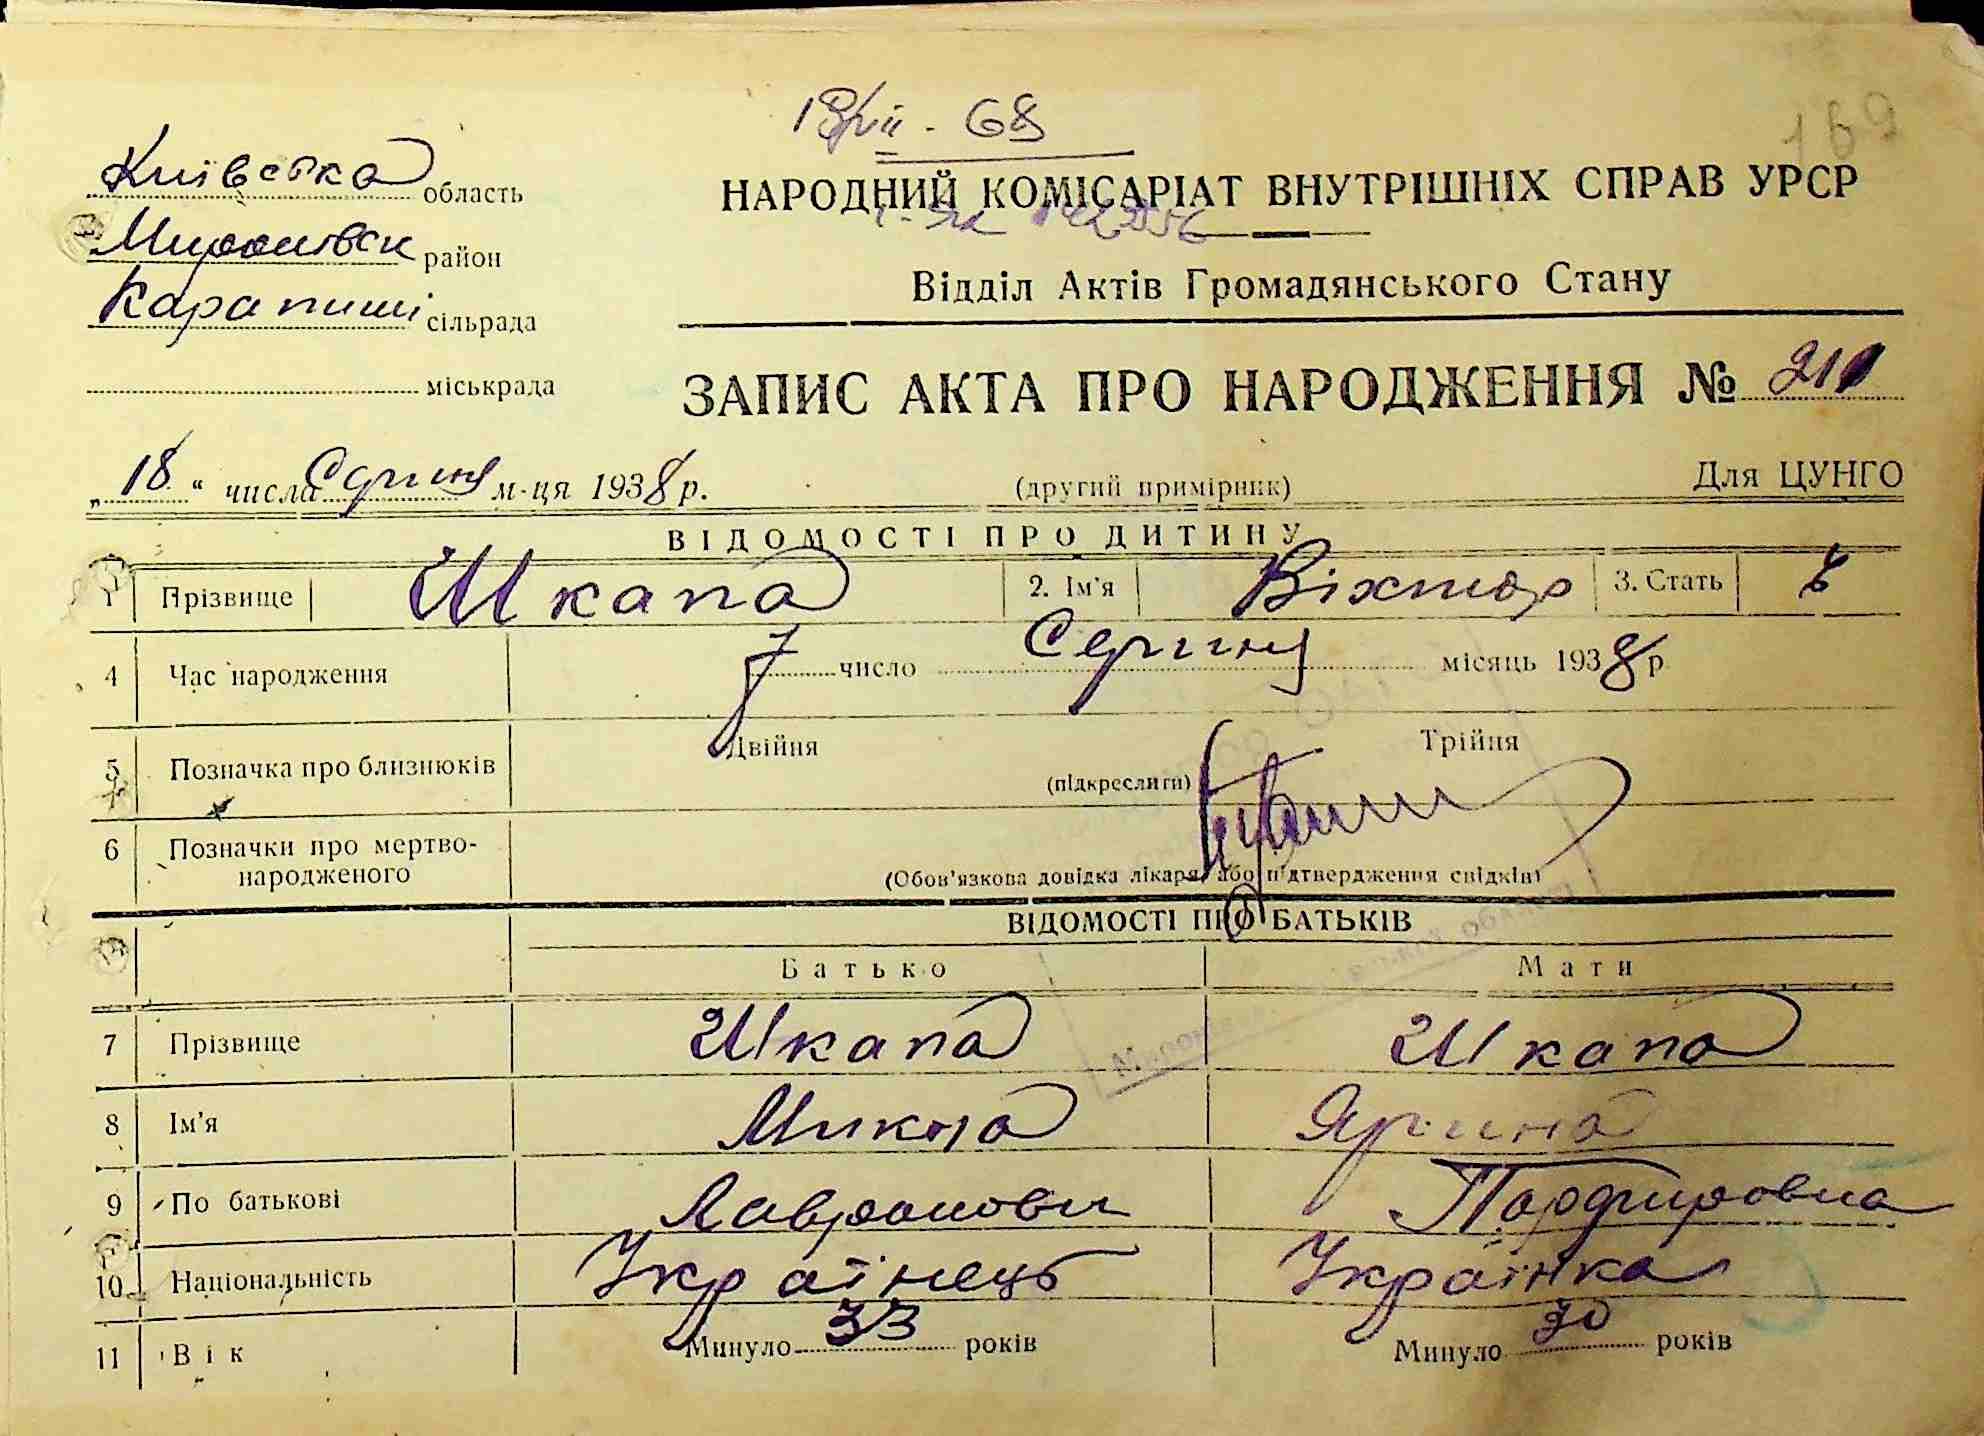 169
Київська область
НАРОДНИЙ КОМІСАРІАТ ВНУТРІШНІХ СПРАВ УРСР
Миронівськ район
Відділ Актів Громадянського Стану
Карапиші сільрада
міськрада
ЗАПИС АКТА ПРО НАРОДЖЕННЯ № 211
„18“ числа Серпня м-ця 1938 р. (другий примірник) Для ЦУНГО
ВІДОМОСТІ ПРО ДИТИНУ
1 Прізвище Шкапа 2. Ім'я Віхтор 3. Стать Ч
4 Час народження 7 число Серпня місяць 1938 р
5 Позначка про близнюків Двійня (підкреслити) Трійня
6 Позначки про мертво-
народженого (Обов'язкова довідка лікаря, або підтвердження свідків)
ВІДОМОСТІ ПРО БАТЬКІВ
Батько Мати
7 Прізвище Шкапа Шкапа
8 Ім'я Микола Ярина
9 По батькові Лавронови Порфировна
10 Національність Українець Українка
11 Вік Минуло 33 років Минуло 30 років